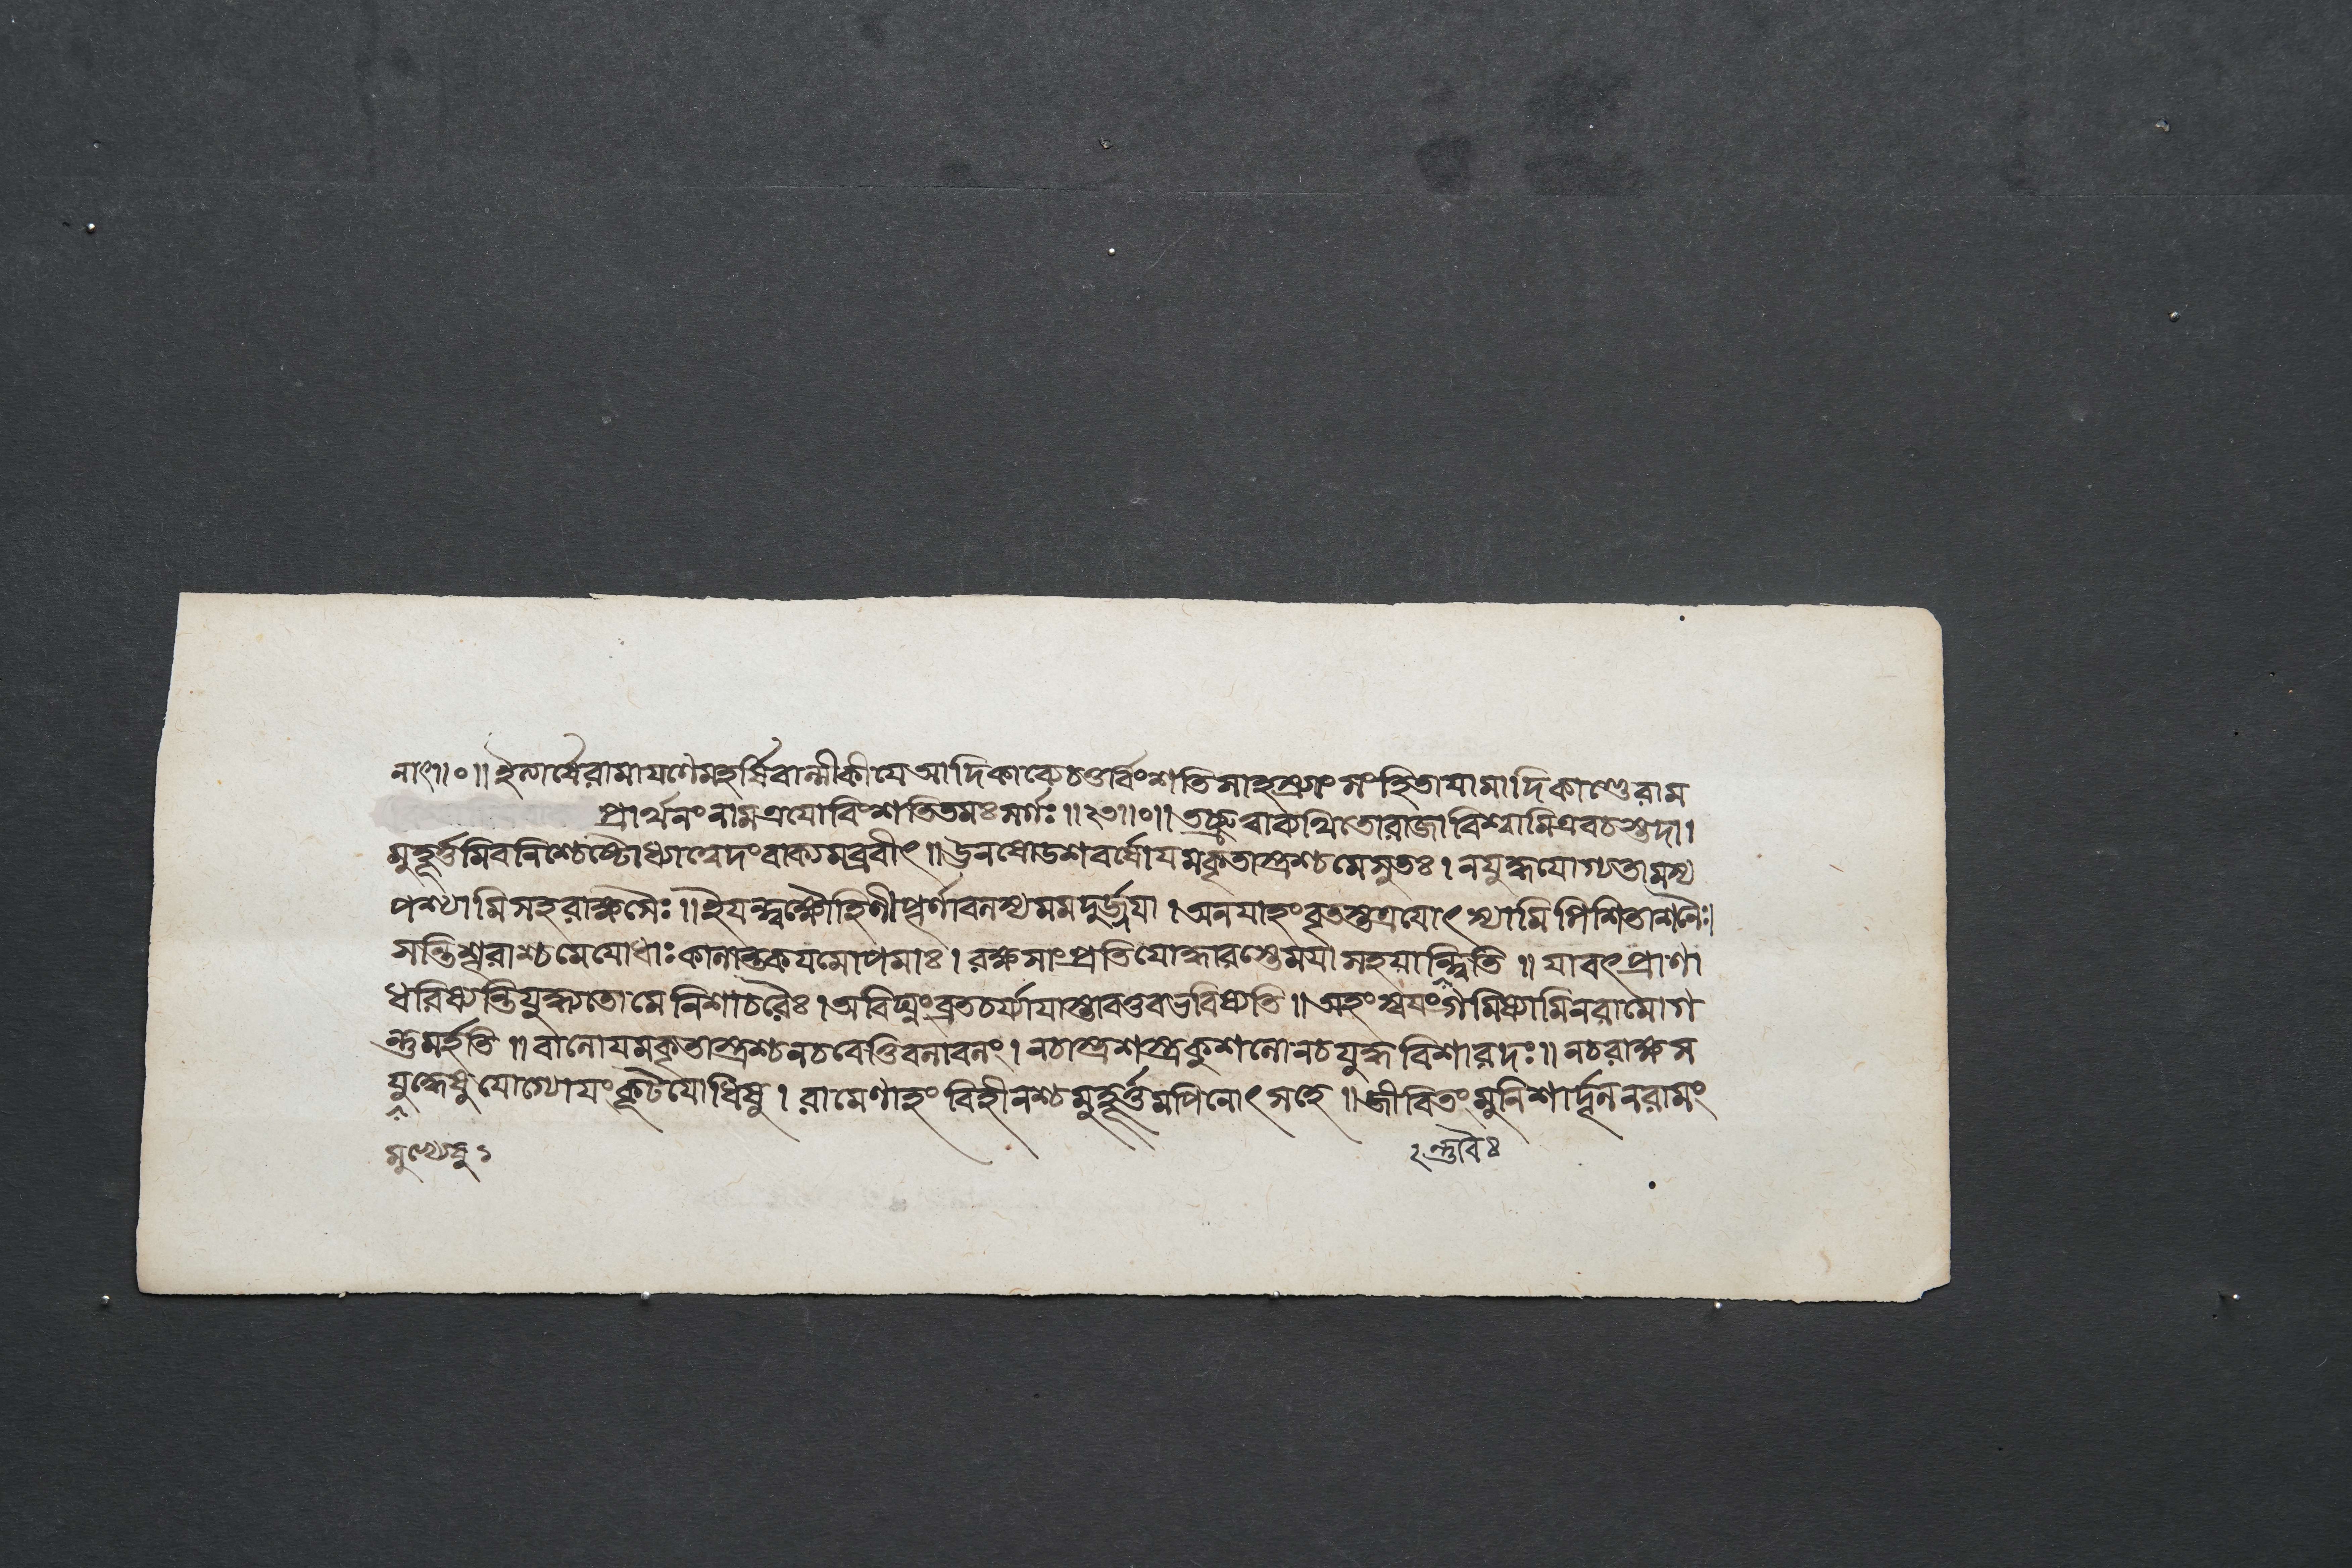 নাৎ॥০॥ ইত্যার্ষেরামাযণেমহর্ষিবাল্মীকীযে আদিকাব্যেচতুর্ব্বিংশতিসাহস্র্যাং সংহিতাযামাদিকাণ্ডেরাম
প্রার্থনংনামত্রযোবিংশতিতমঃ সর্গঃ॥২৩॥০॥ তচ্ছ্রুত্বাকথিতোরাজাবিশ্বামিত্রবচস্তদা।
মুহূর্ত্তমিবনিশ্চেষ্টোধ্যাত্বেদংবাক্যমব্রবীৎ॥ ঊনষোডশবর্ষোযমকৃতাস্ত্রশ্চমেসুতঃ। নযুদ্ধযোগ্যতামস্য
পশ্যামিসহরাক্ষসৈঃ॥ ইযন্ত্বক্ষৌহিণীপূর্ণাবলস্যমমদুর্জ্জযা। অনযাহংবৃতস্তত্রযোৎস্যামিপিশিতাশনৈঃ।
সন্তিশূরাশ্চমেযোধাঃ কালান্তকযমোপমাঃ। রক্ষসাংপ্রতিযোদ্ধারস্তেমযাসহযান্ত্বিতি॥ যাবৎপ্রাণা
ধরিষ্যন্তিযুদ্ধ্যতোমেনিশাচরৈঃ। অবিঘ্নংব্রতচর্য্যাযাস্তাবত্তবভবিষ্যতি॥ অহংস্বযংগমিষ্যামিনরামোগ
ন্তুমর্হতি॥ বালোযমকৃতাস্ত্রশ্চনচবেত্তিবলাবলং। নচাস্ত্রশস্ত্রকুশলোনচযুদ্ধবিশারদঃ॥ নচরাক্ষস
যুদ্ধেষুযোগ্যোযংকূটযোধিষু। রামেণাহংবিহীনশ্চমুহূর্ত্তমপিনোৎসহে॥ জীবিতংমুনিশার্দ্দূলনরামং
মুখ্যেষু ১
২ ন্ত্রবৈঃ